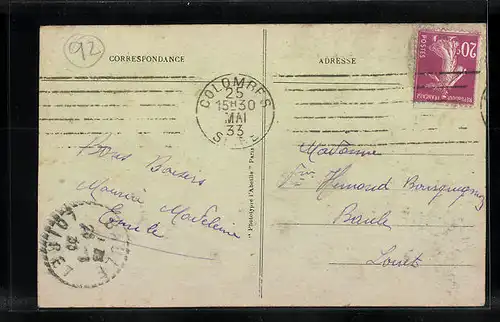 92
CORRESPONDANCE
ADRESSE
20c
POSTES
REPUBLIQUE FRANÇAISE
COLOMBES
25
15H30
MAI
33
SEINE
Bons Baisers
Maurice Madeleine
Emile
Madame
Baule
Loiret
BAULE
LOIRET
"Phototypie l'Abeille" Paris